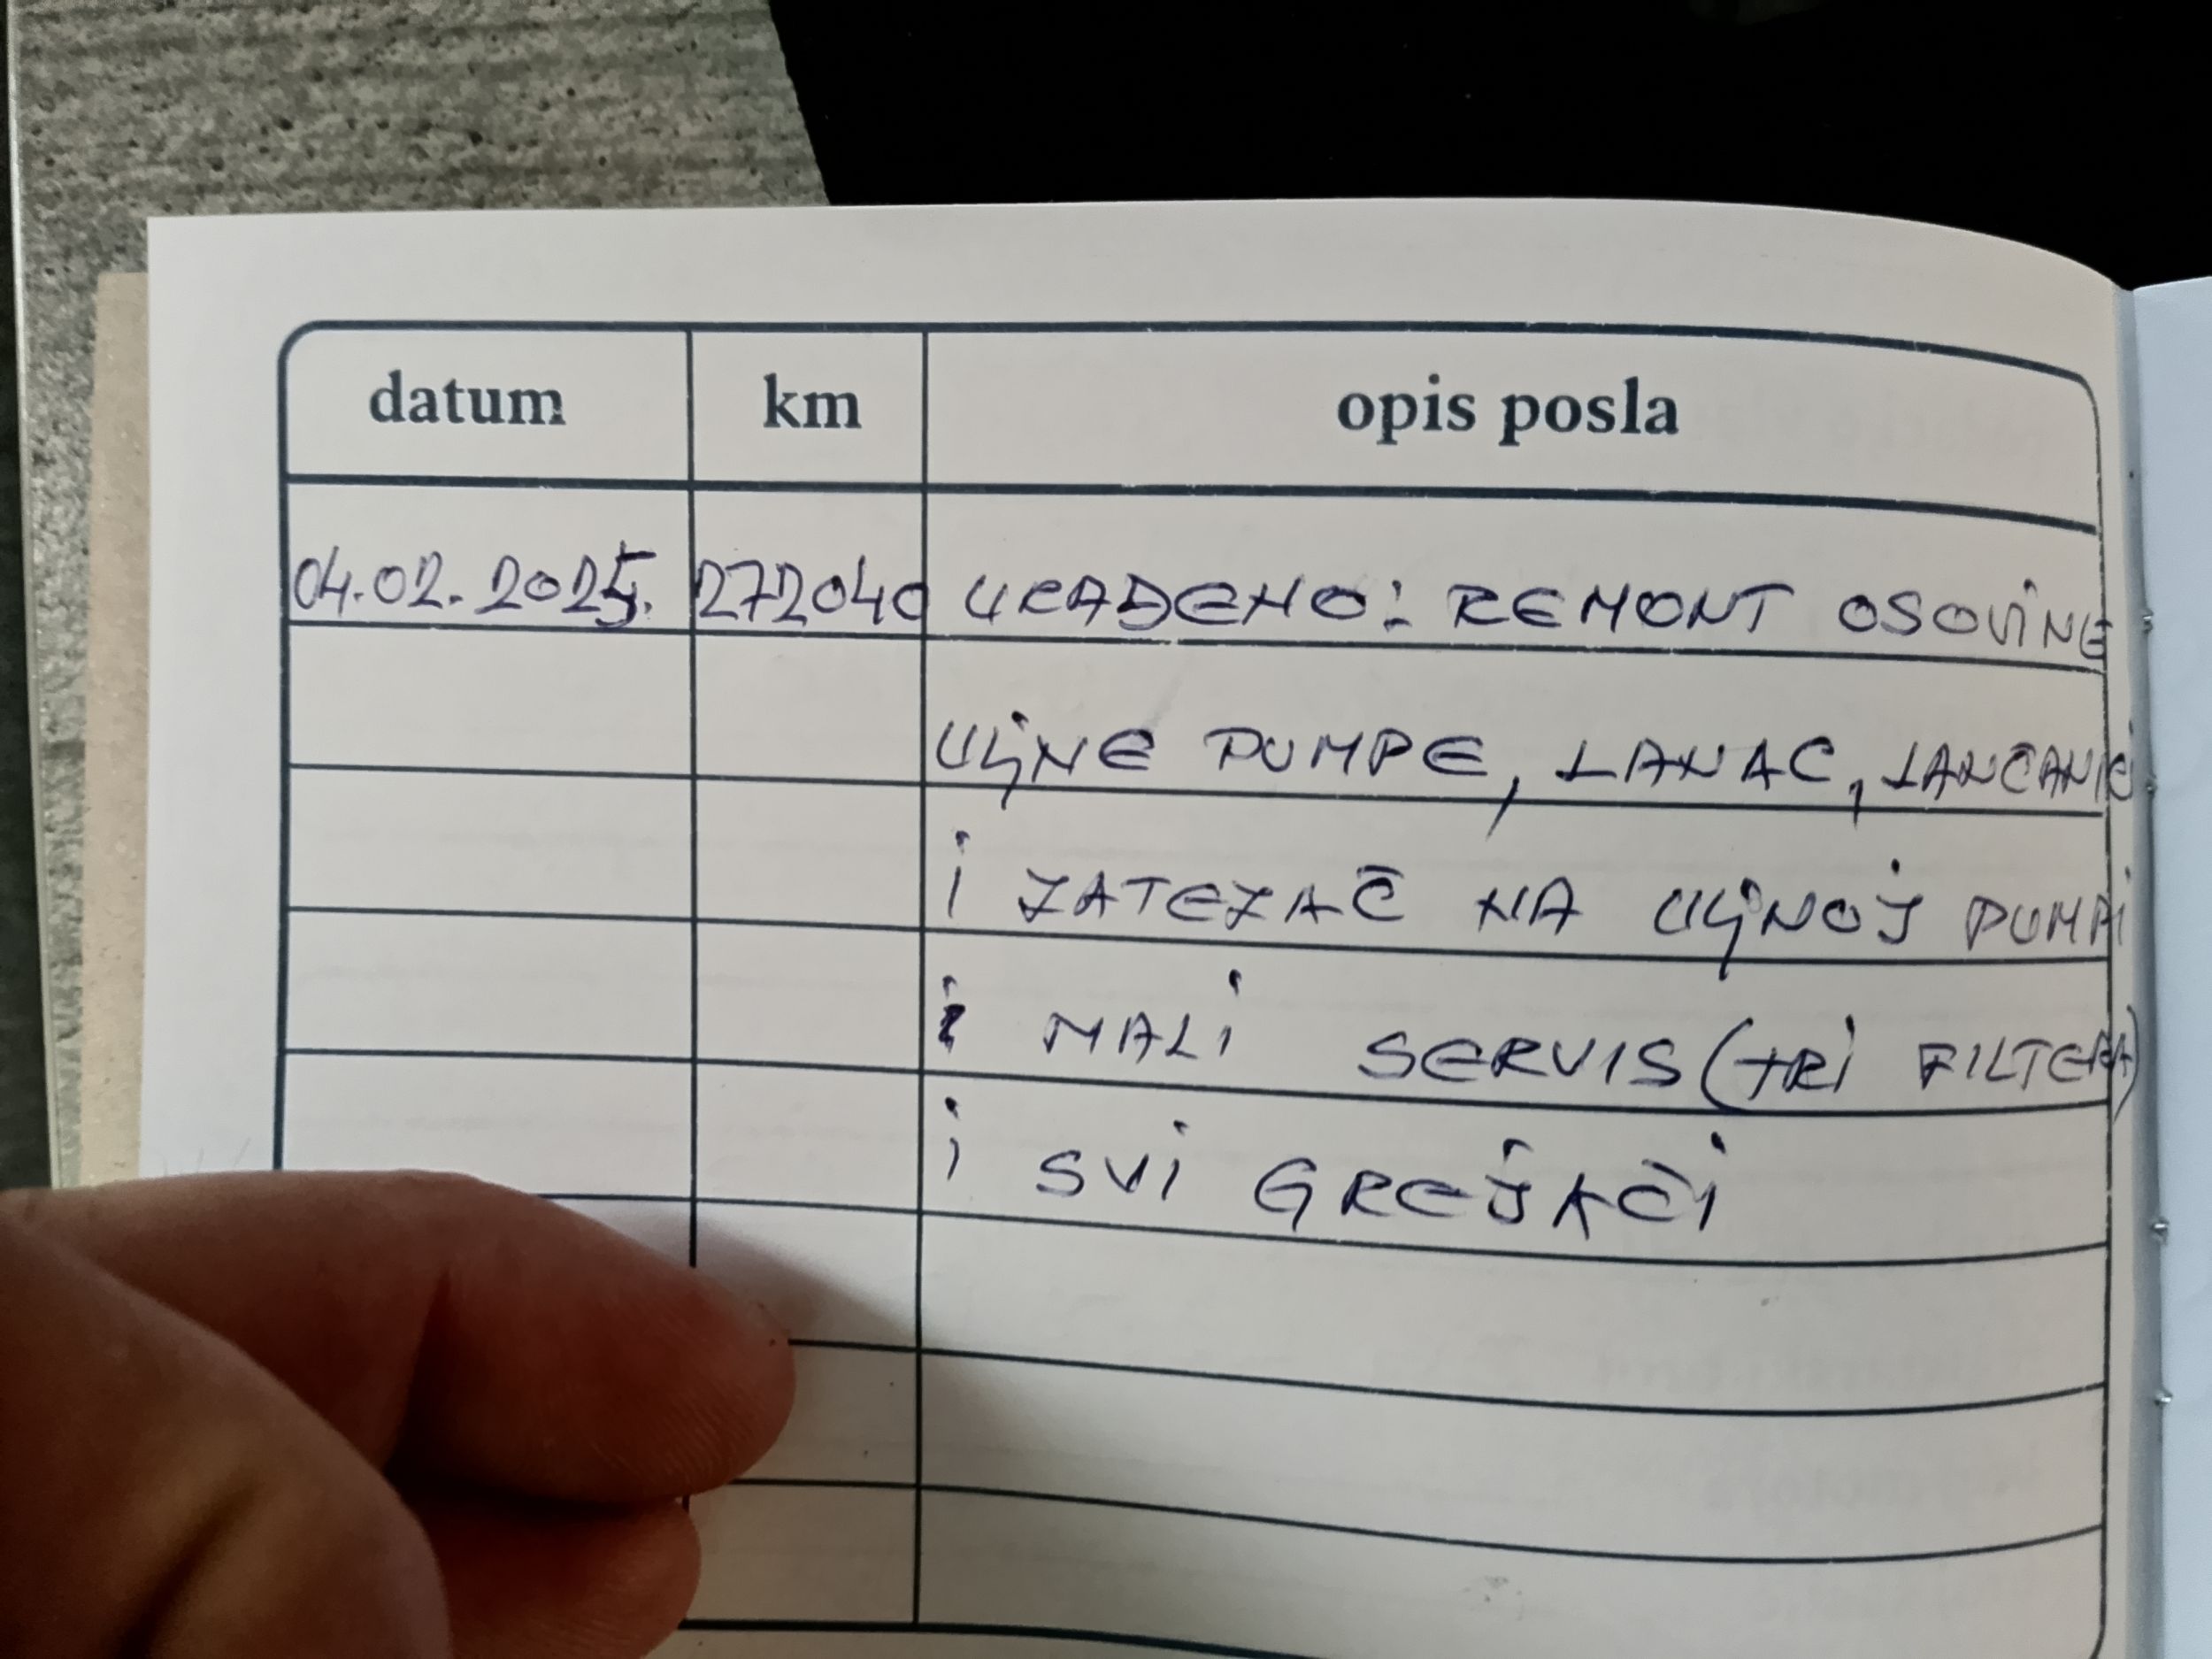 datum km opis posla
04.02.2025. 272040 URAĐENO: REMONT OSOVINE
ULJNE PUMPE, LANAC, LANČANIC
i ZATEZAČ NA ULJNOJ PUMPI
i MALI SERVIS (TRI FILTERA)
i SVI GREJAČI